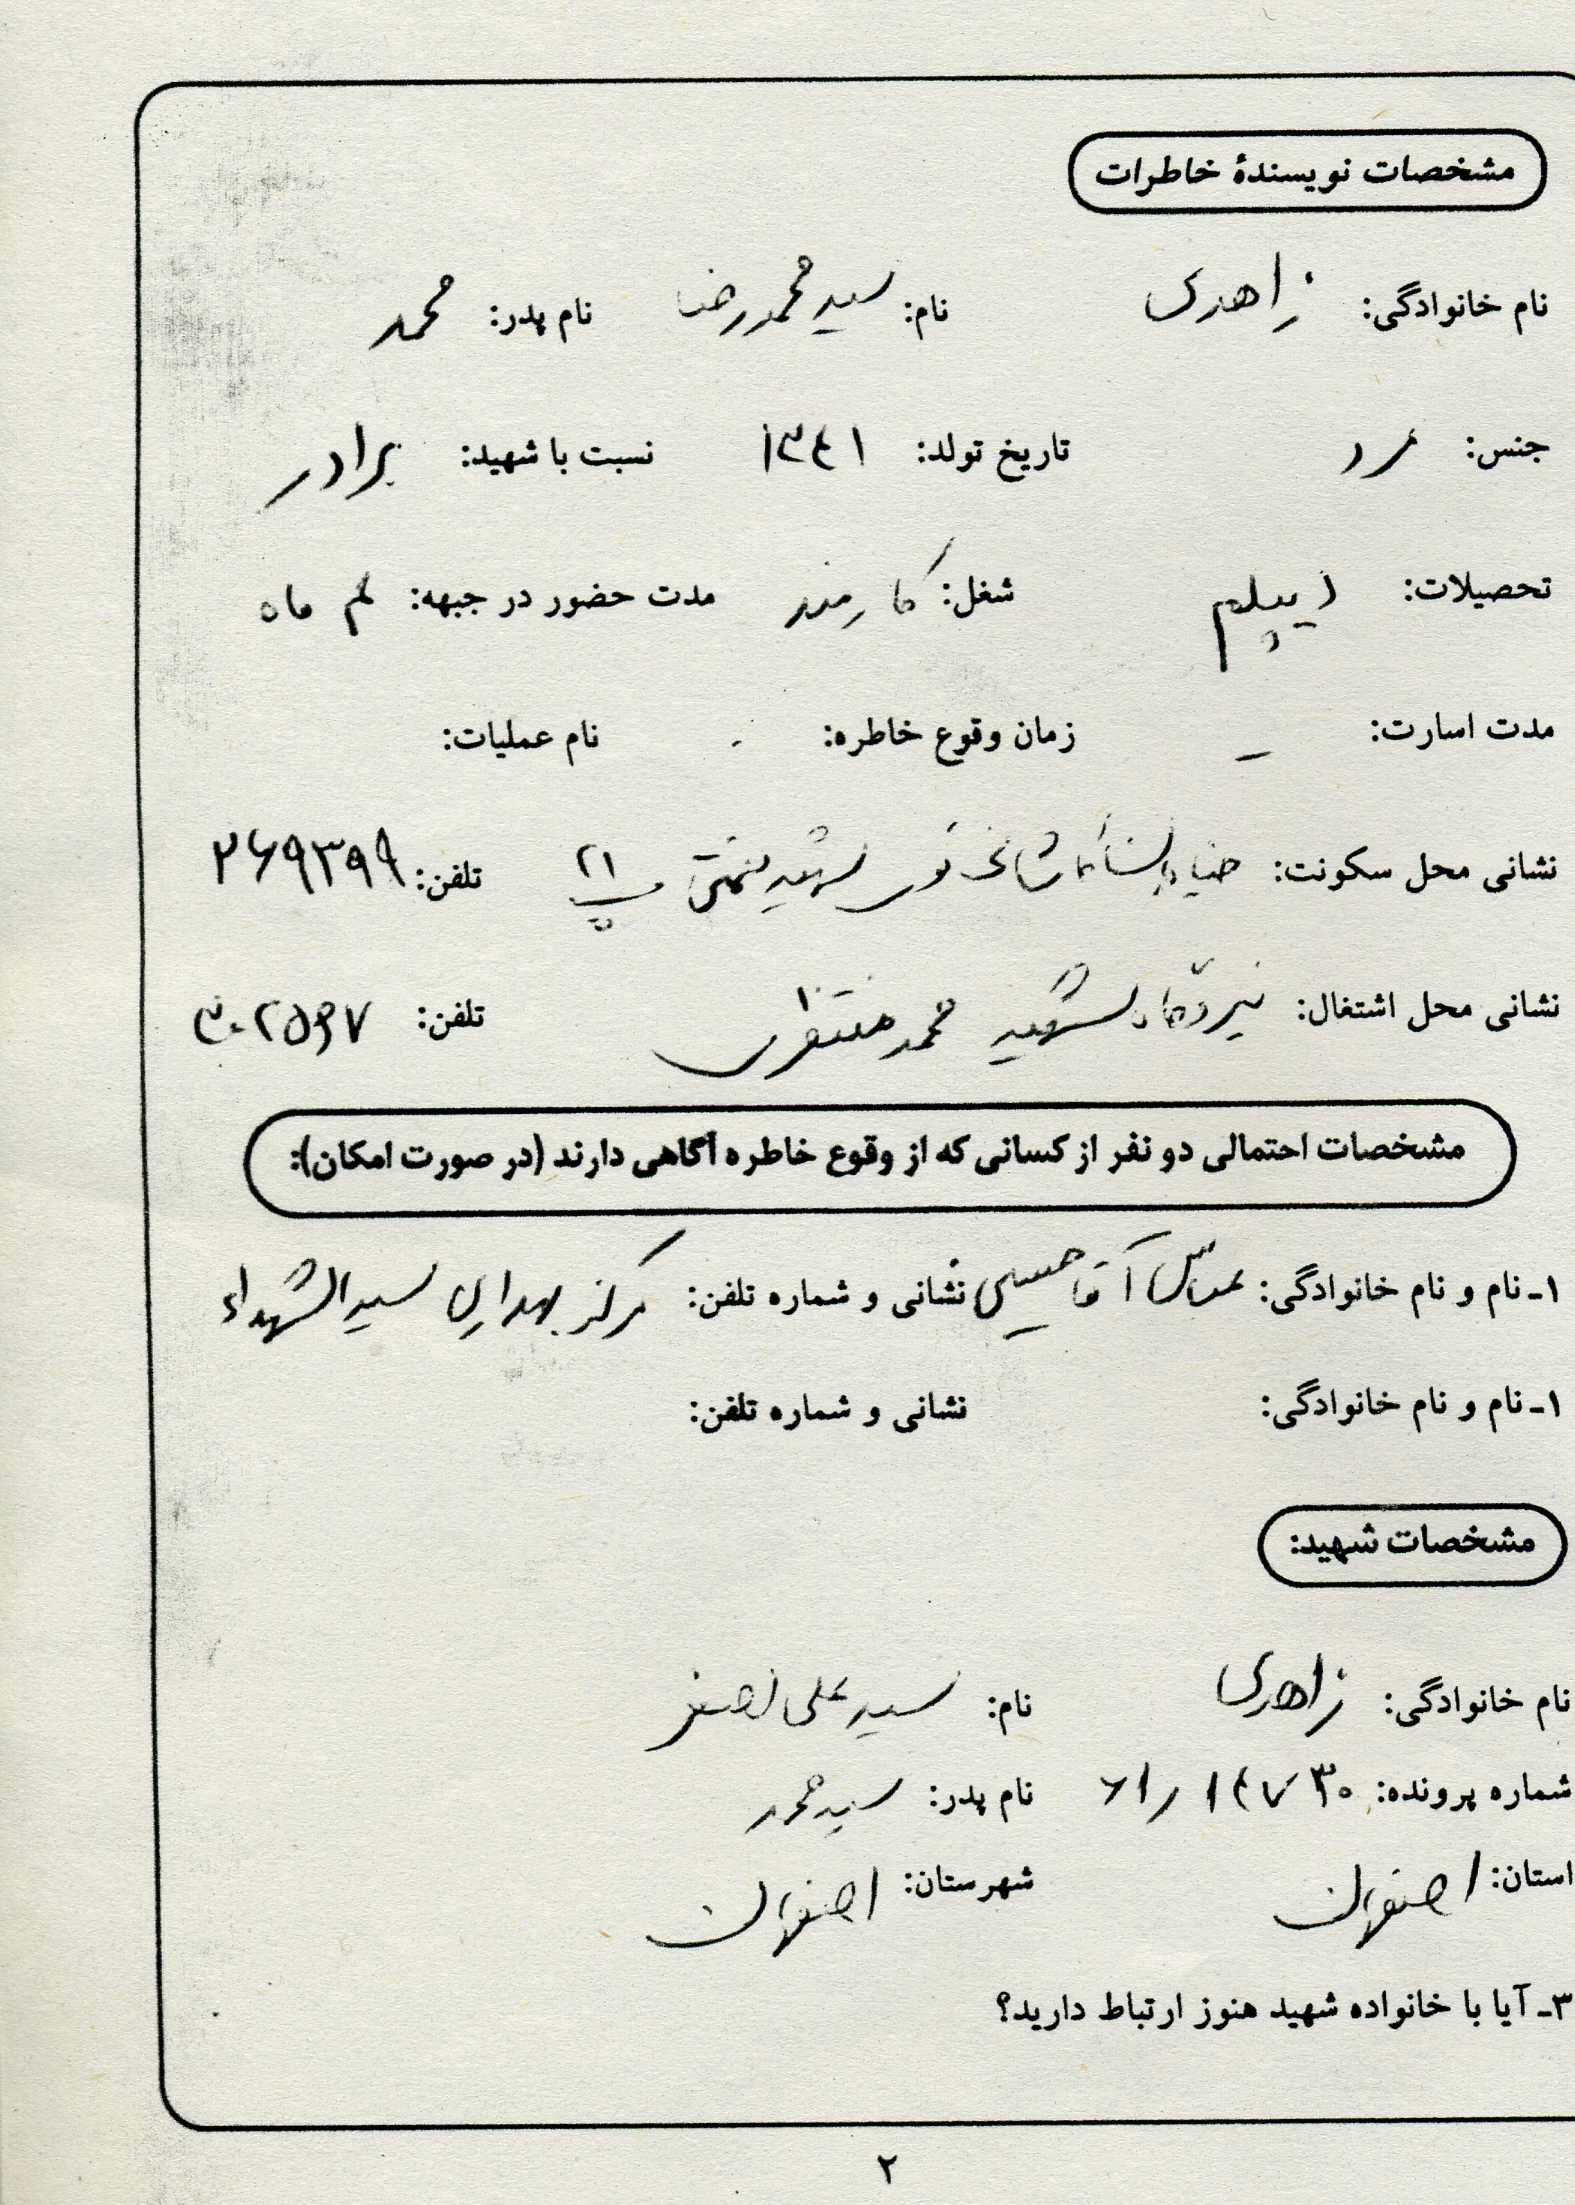 مشخصات نویسندهٔ خاطرات
نام خانوادگی: زاهدی نام: سید محمدرضا نام پدر: محمد
جنس: مرد تاریخ تولد: ۱۳۴۱ نسبت با شهید: برادر
تحصیلات: دیپلم شغل: کارمند مدت حضور در جبهه: ۴ ماه
مدت اسارت: – زمان وقوع خاطره: نام عملیات:
نشانی محل سکونت: شهید پ ۲۱ تلفن: ۲۶۹۳۹۹
نشانی محل اشتغال: نیروگاه شهید محمد منتظری تلفن: ۳۰۲۵۹۷
مشخصات احتمالی دو نفر از کسانی که از وقوع خاطره آگاهی دارند (در صورت امکان):
۱ـ نام و نام خانوادگی: عباس آقا حسینی نشانی و شماره تلفن: مرکز بهداری سیدالشهداء
۱ـ نام و نام خانوادگی: نشانی و شماره تلفن:
مشخصات شهید:
نام خانوادگی: زاهدی نام: سید علی اصغر
شماره پرونده: ۶۱/۱۴۷۳۰ نام پدر: سید محمد
استان: اصفهان شهرستان: اصفهان
۳ـ آیا با خانواده شهید هنوز ارتباط دارید؟
۲